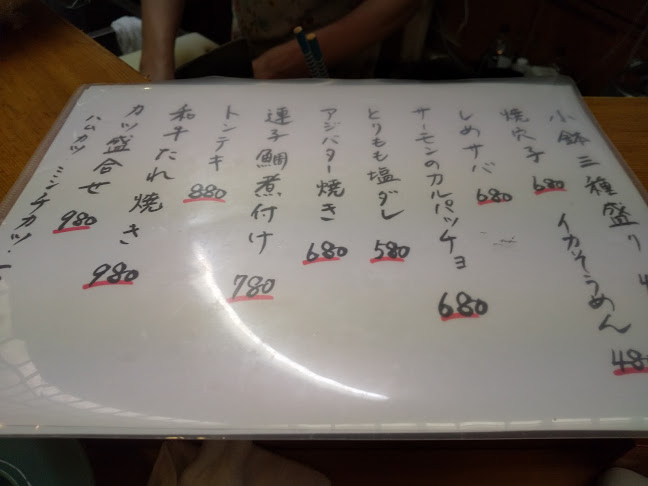 小鉢三種盛り
イカそうめん
48
焼穴子
680
しめサバ
680
サーモンのカルパッチョ
680
とりもも塩ダレ
580
アジバター焼き
680
連子鯛煮付け
780
トンテキ
880
和牛たれ焼き
980
カツ盛合せ
980
ハムカツ ミンチカツ